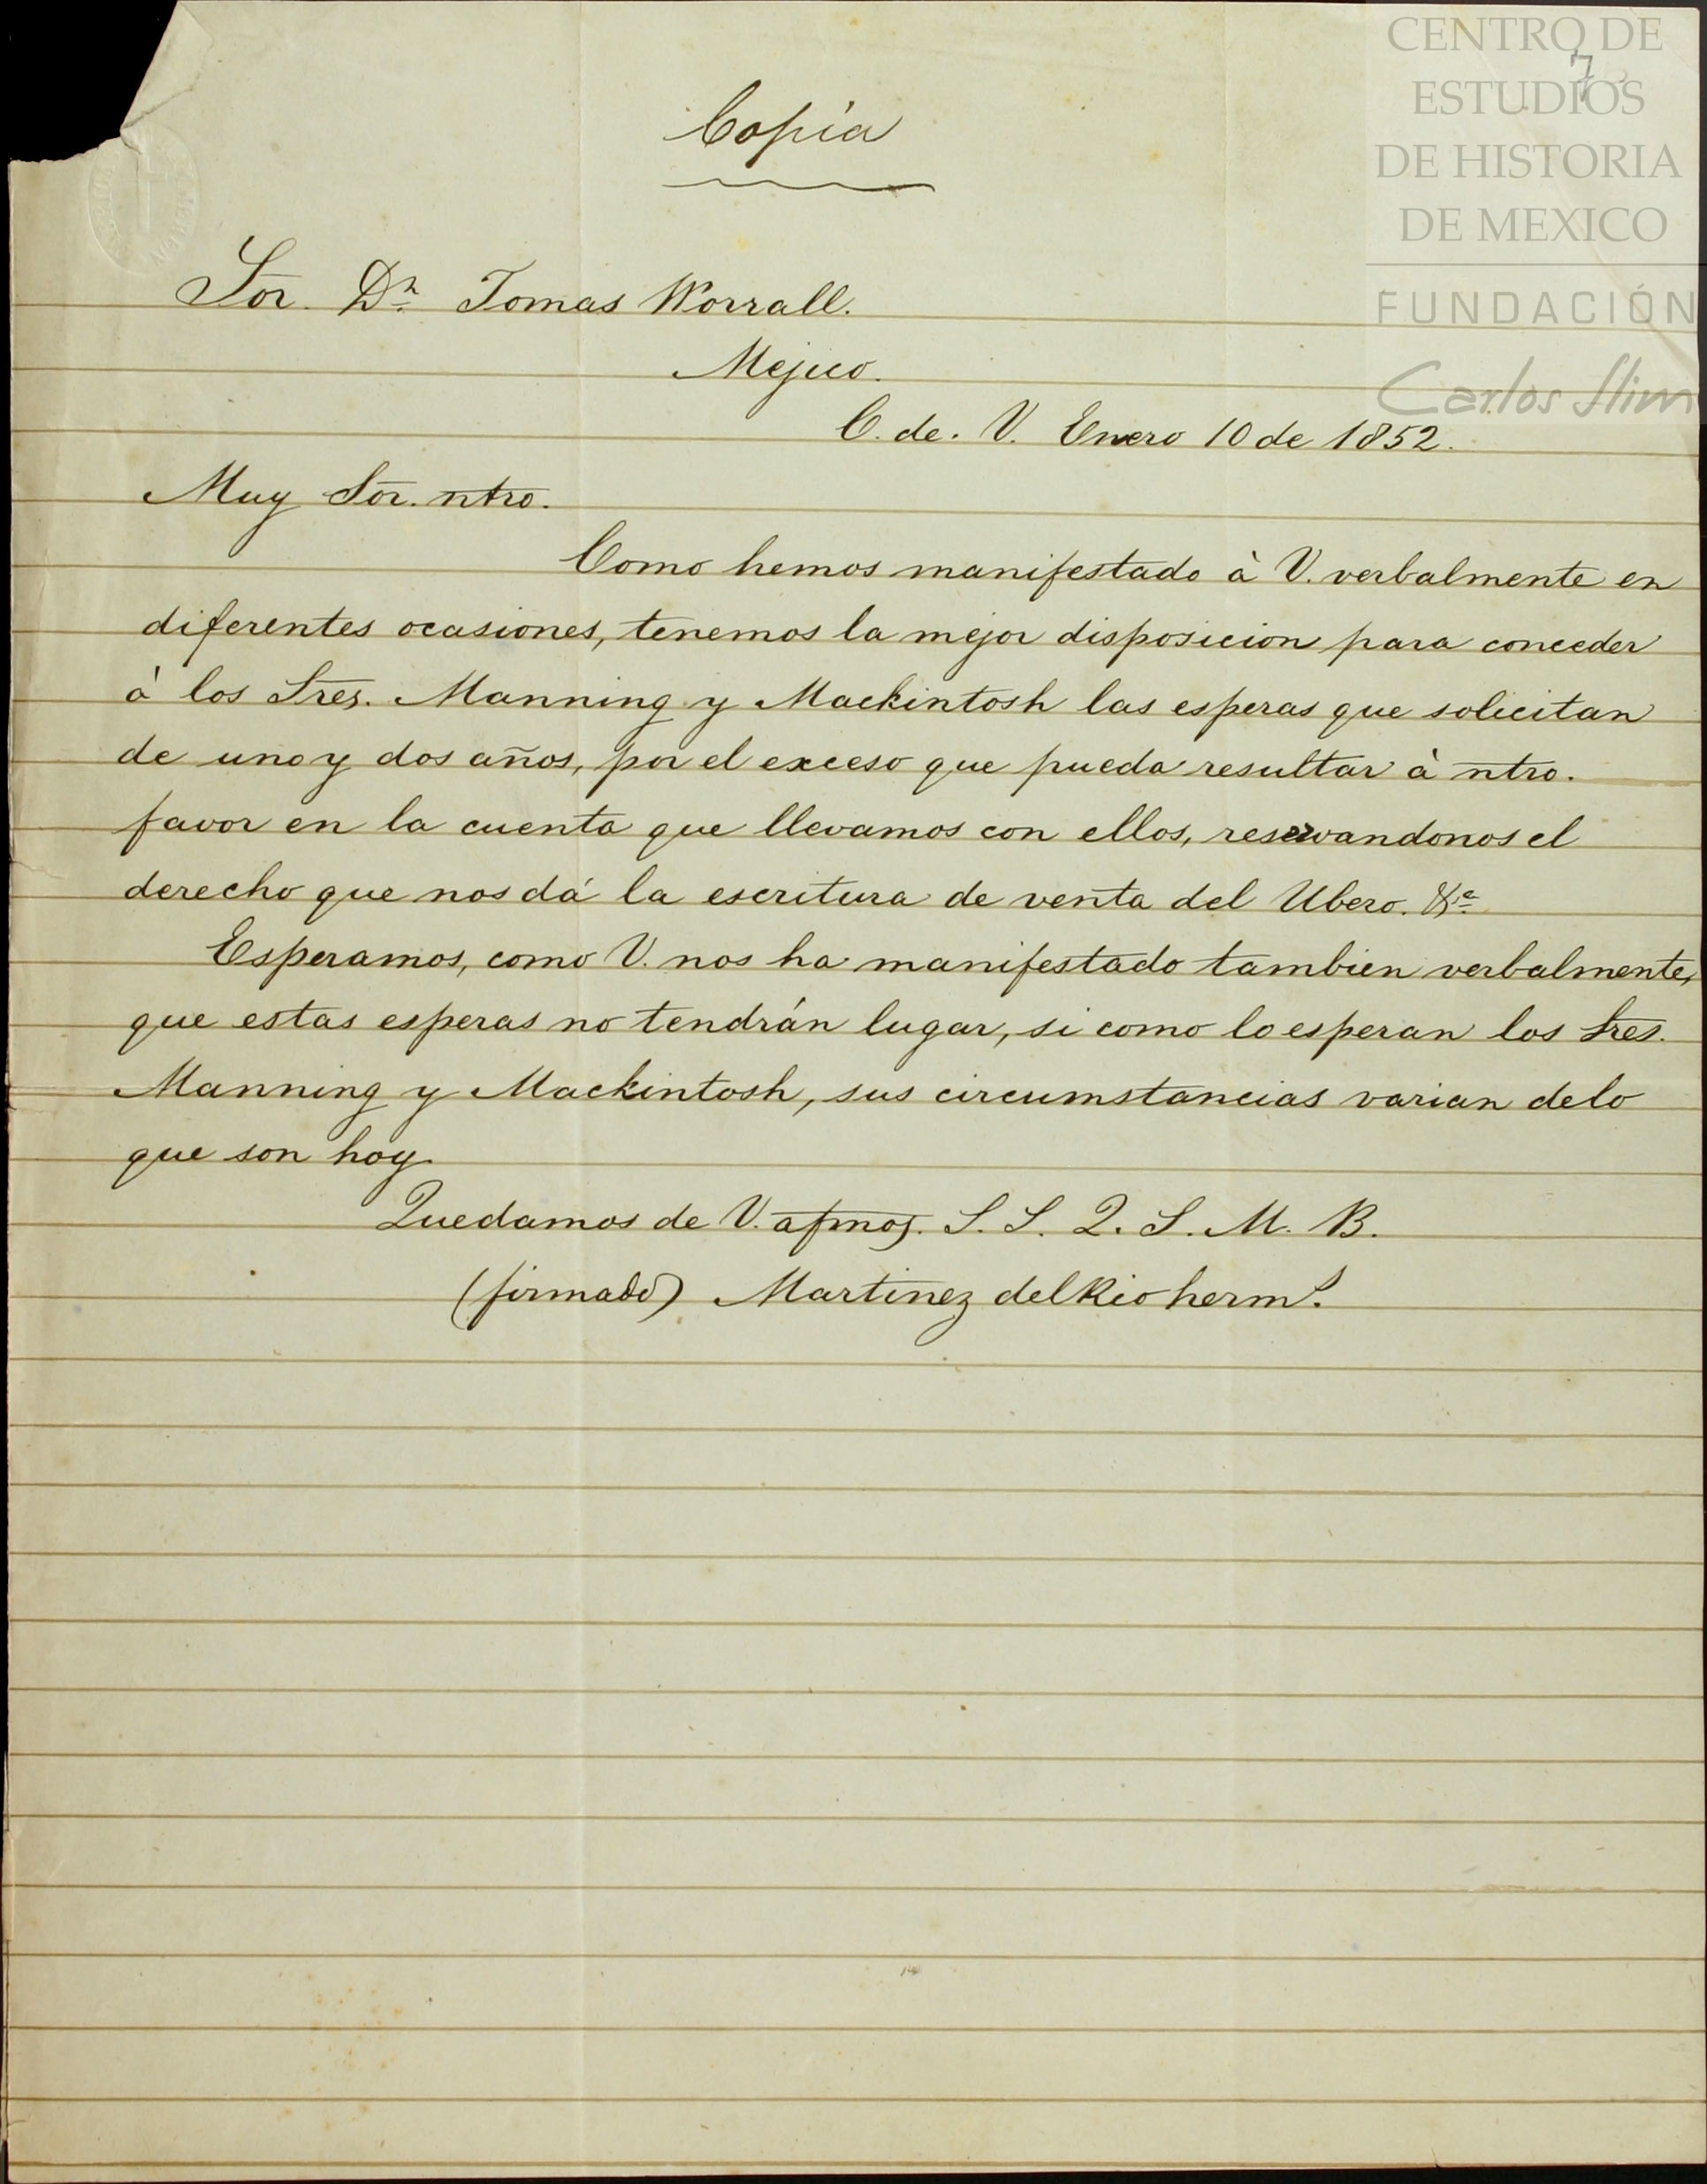 CENTRO DE
ESTUDIOS
DE HISTORIA
DE MEXICO
FUNDACIÓN
Carlos Slim
7
Copia
Sor. Dn. Tomas Worrall.
Mejico.
C. de. V. Enero 10 de 1852.
Muy Sor. ntro.
Como hemos manifestado à V. verbalmente en
diferentes ocasiones, tenemos la mejor disposicion para conceder
à los Sres. Manning y Mackintosh las esperas que solicitan
de uno y dos años, por el exceso que pueda resultar à ntro.
favor en la cuenta que llevamos con ellos, reservandonos el
derecho que nos dá la escritura de venta del Ubero. &a
Esperamos, como V. nos ha manifestado tambien verbalmente,
que estas esperas no tendrán lugar, si como lo esperan los Sres.
Manning y Mackintosh, sus circumstancias varian de lo
que son hoy.
Quedamos de V. afmos. S. S. Q. S. M. B.
(firmado) Martinez del Rio herms.